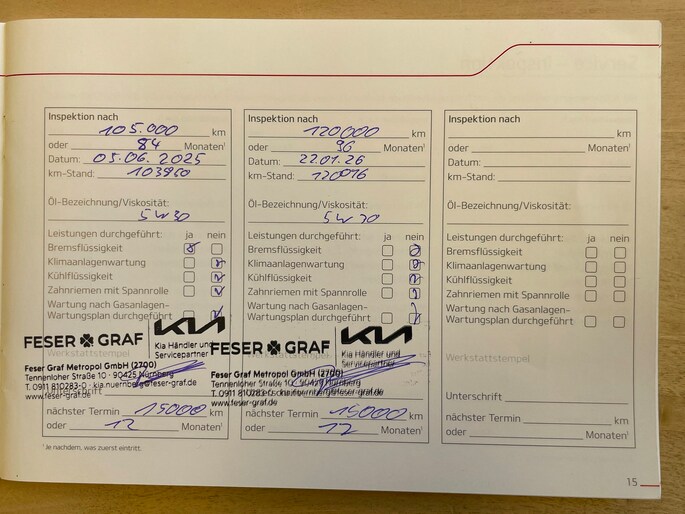 Inspektion nach
105.000 km
oder 84 Monaten¹
Datum: 05.06.2025
km-Stand: 103950
Öl-Bezeichnung/Viskosität:
5W30
Leistungen durchgeführt: ja nein
Bremsflüssigkeit
Klimaanlagenwartung
Kühlflüssigkeit
Zahnriemen mit Spannrolle
Wartung nach Gasanlagen-
Wartungsplan durchgeführt
FESER GRAF
KIA
Kia Händler und
Servicepartner
Werkstattstempel
Feser Graf Metropol GmbH (2700)
Tennenloher Straße 10 · 90425 Nürnberg
T. 0911 810283-0 · kia.nuernberg@feser-graf.de
www.feser-graf.de
Unterschrift
nächster Termin 15000 km
oder 12 Monaten¹
¹ Je nachdem, was zuerst eintritt.
Inspektion nach
120000 km
oder 96 Monaten¹
Datum: 22.01.26
km-Stand: 120016
Öl-Bezeichnung/Viskosität:
Leistungen durchgeführt: ja nein
Bremsflüssigkeit
Klimaanlagenwartung
Kühlflüssigkeit
Zahnriemen mit Spannrolle
Wartung nach Gasanlagen-
Wartungsplan durchgeführt
FESER GRAF
KIA
Kia Händler und
Servicepartner
Werkstattstempel
Feser Graf Metropol GmbH (2700)
Tennenloher Straße 10 · 90425 Nürnberg
T. 0911 810283-0
www.feser-graf.de
nächster Termin 15000 km
oder 12 Monaten¹
Inspektion nach
km
oder Monaten¹
Datum:
km-Stand:
Öl-Bezeichnung/Viskosität:
Leistungen durchgeführt: ja nein
Bremsflüssigkeit
Klimaanlagenwartung
Kühlflüssigkeit
Zahnriemen mit Spannrolle
Wartung nach Gasanlagen-
Wartungsplan durchgeführt
Werkstattstempel
Unterschrift
nächster Termin km
oder Monaten¹
15